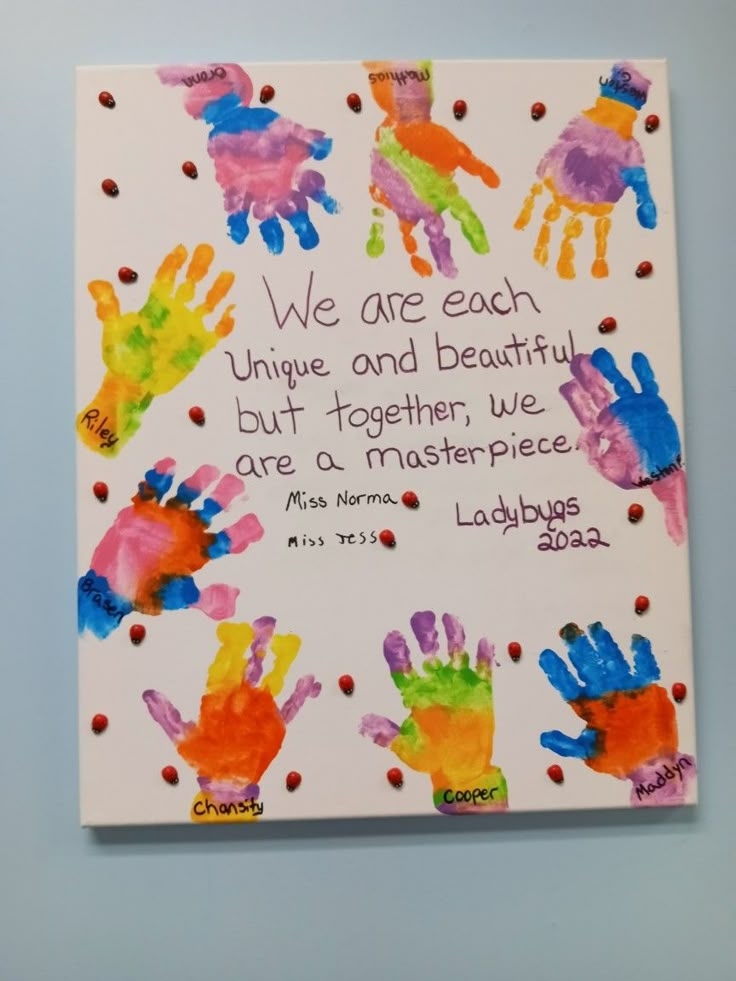 Bronn
Mathias
We are each
Unique and beautiful
but together, we
are a masterpiece.
Riley
Miss Norma
Miss Jess
Ladybugs
2022
Brasen
Chansity
Cooper
Maddyn